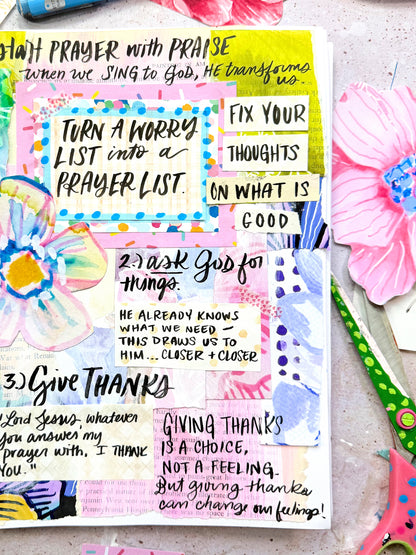 start PRAYER with PRAISE
when we SING to GOD, HE transforms
us.
TURN A WORRY
LIST into a
PRAYER LIST.
FIX YOUR
THOUGHTS
ON WHAT IS
GOOD
2.) ask GOD for
things.
HE ALREADY KNOWS
WHAT WE NEED —
THIS DRAWS US TO
HIM... CLOSER + CLOSER
3.) GIVE THANKS
"Lord Jesus, whatever
you answer my
prayer with, I THANK
YOU."
GIVING THANKS
IS A CHOICE,
NOT A FEELING.
But giving thanks
can change our feelings!